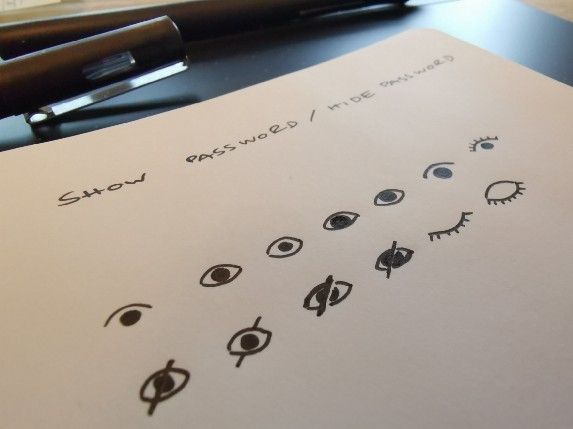 SHOW PASSWORD / HIDE PASSWORD